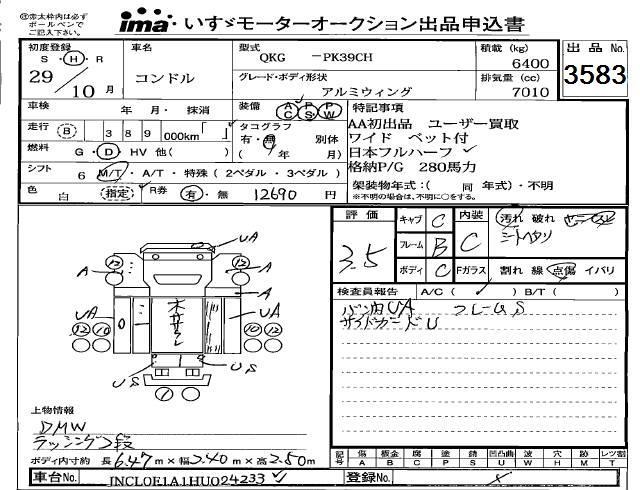 ㊟赤太枠内は必ず
ボールペンで
ご記入下さい。
ima・いすゞモーターオークション出品申込書
初度登録 S・H・R 29/10月
車名 コンドル
型式 QKG －PK39CH
グレード・ボディ形状 アルミウィング
積載(kg) 6400
排気量(cc) 7010
出品No. 3583
車検 年 月・抹消
装備 AC PS PW
走行 8 389 000km「 」
タコグラフ 有・無 別体
( 年 月)
燃料 G・D・HV 他( )
シフト 6 M/T・A/T・特殊(2ペダル・3ペダル)
色 白 (指定) R券 有・無 12690 円
特記事項
AA初出品 ユーザー買取
ワイド ベット付
日本フルハーフ
格納P/G 280馬力
架装物年式:( 同 年式)・不明
※不明の場合は、不明に○をする。
評価 3.5
キャブ C
フレーム B
ボディ C
内装 C
Fガラス
汚れ 破れ
シートヘタリ
割れ 線 点傷 イバリ
検査員報告 A/C( ) B/T( )
バン内UA フレームS
サイドガードU
UA
A
12
12
A
A
UA
木サビ
UA
12 10
10 12
US
US
1
上物情報
DMW
ラッシング2段
ボディ内寸約 長6.47m×幅2.40m×高2.50m
記号 傷A 板金B 腐C 塗P 錆S 凹凸曲U 波W 穴H 跡M レンズ割T
車台No. JNCLOE1A1HU024233
登録No.